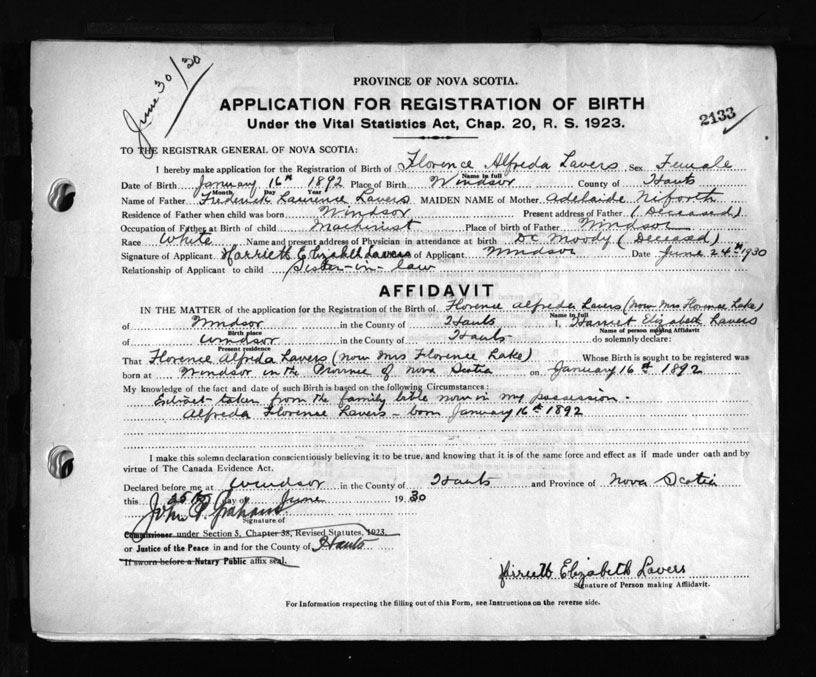 June 30/30
PROVINCE OF NOVA SCOTIA.
APPLICATION FOR REGISTRATION OF BIRTH
Under the Vital Statistics Act, Chap. 20, R. S. 1923.
2133
TO THE REGISTRAR GENERAL OF NOVA SCOTIA:
I hereby make application for the Registration of Birth of Florence Alfreda Lavers Sex Female
Name in full
Date of Birth January 16th 1892 Place of Birth Windsor County of Hants
Month Day Year
Name of Father Frederick Laurence Lavers MAIDEN NAME of Mother Adelaide
Residence of Father when child was born Windsor Present address of Father (Deceased)
Occupation of Father at Birth of child Machinist Place of birth of Father Windsor
Race White Name and present address of Physician in attendance at birth Dr Moody (Deceased)
Signature of Applicant Harriett Elizabeth Lavers of Applicant Windsor Date June 24th 1930
Relationship of Applicant to child Sister-in-law
AFFIDAVIT
IN THE MATTER of the application for the Registration of the Birth of Florence Alfreda Lavers (now Mrs Florence Lake)
Name in full
of Windsor in the County of Hants I, Harriet Elizabeth Lavers
Birth place Name of person making Affidavit
of Windsor in the County of Hants do solemnly declare:
Present residence
That Florence Alfreda Lavers (now Mrs Florence Lake) Whose Birth is sought to be registered was
born at Windsor in the Province of Nova Scotia on January 16th 1892
My knowledge of the fact and date of such Birth is based on the following Circumstances:
Extract taken from the family bible now in my possession.
Alfreda Florence Lavers - born January 16th 1892
I make this solemn declaration conscientiously believing it to be true, and knowing that it is of the same force and effect as if made under oath and by
virtue of The Canada Evidence Act.
Declared before me at Windsor in the County of Hants and Province of Nova Scotia
this 25th day of June 1930
John P.
Signature of
Commissioner under Section 5, Chapter 38, Revised Statutes, 1923.
or Justice of the Peace in and for the County of Hants
If sworn before a Notary Public affix seal.
Elizabeth Lavers
Signature of Person making Affidavit.
For Information respecting the filling out of this Form, see Instructions on the reverse side.